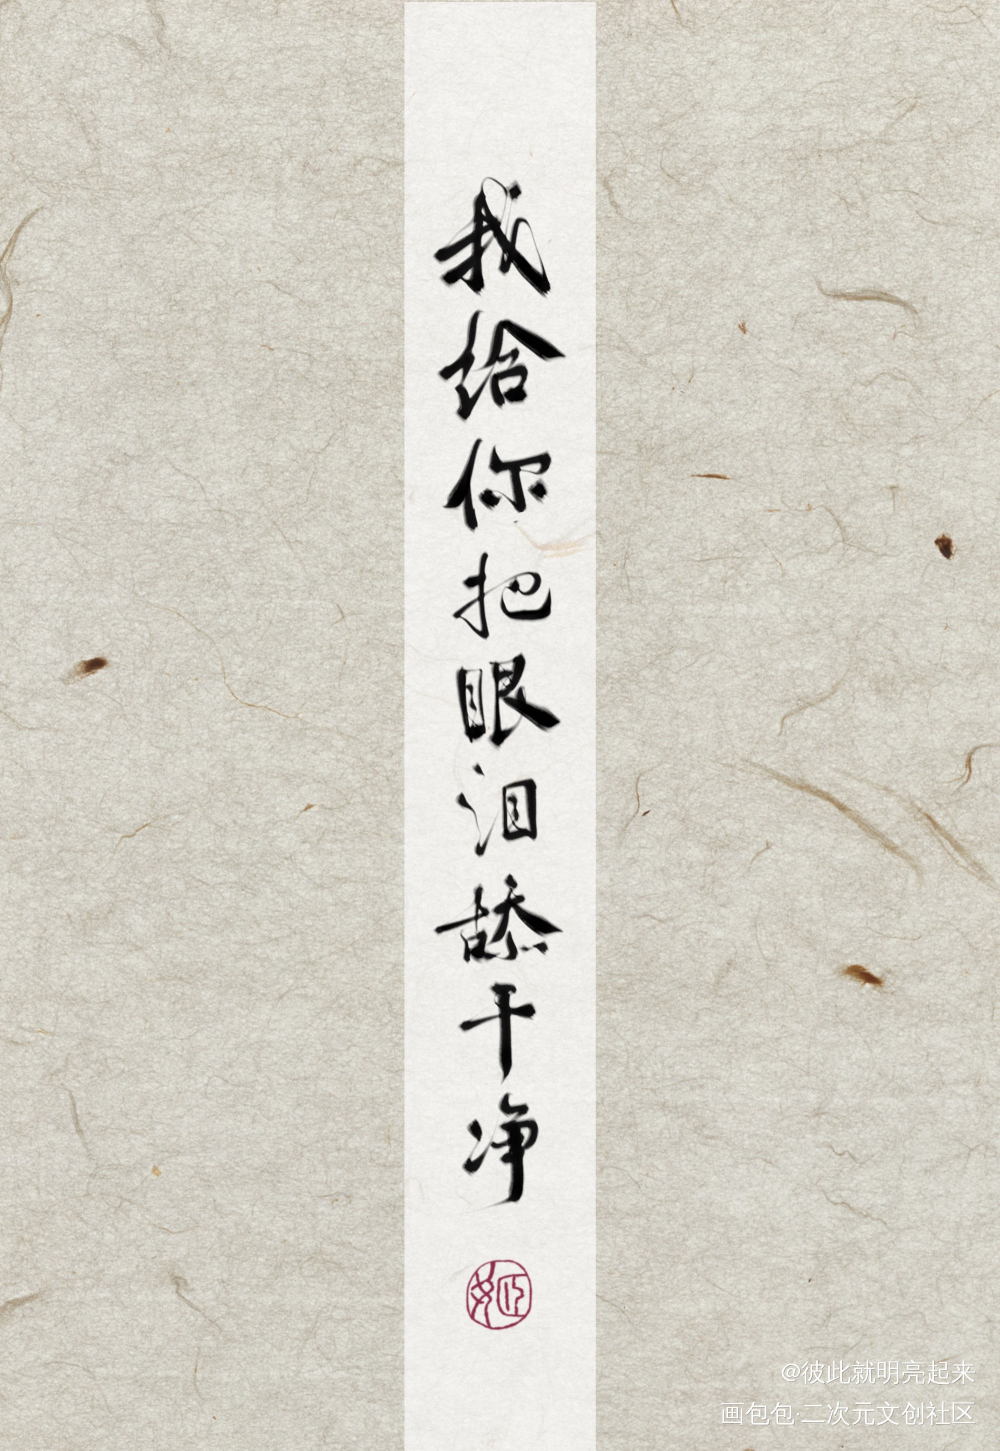 我给你把眼泪舔干净
姬
@彼此就明亮起来
画包包·二次元文创社区